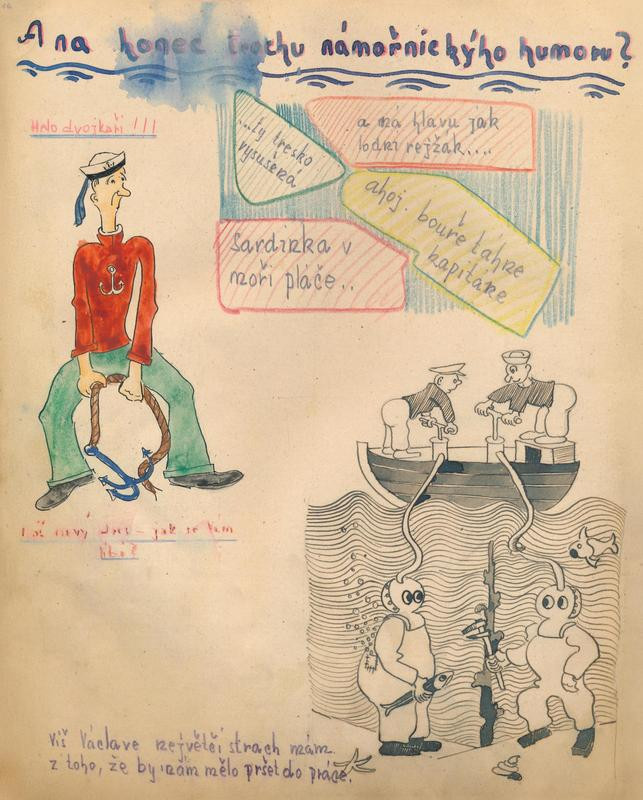 A na konec trochu námořnickýho humoru?
Helo dvojkaři !!!
...ty tresko
vysušená
a má hlavu jak
lodní rejžák....
ahoj. bouře táhne
kapitáne
Sardinka v
moři pláče..
nový - jak se Vám
líbí?
Víš Václave největší strach mám
z toho, že by nám mělo pršet do práce.